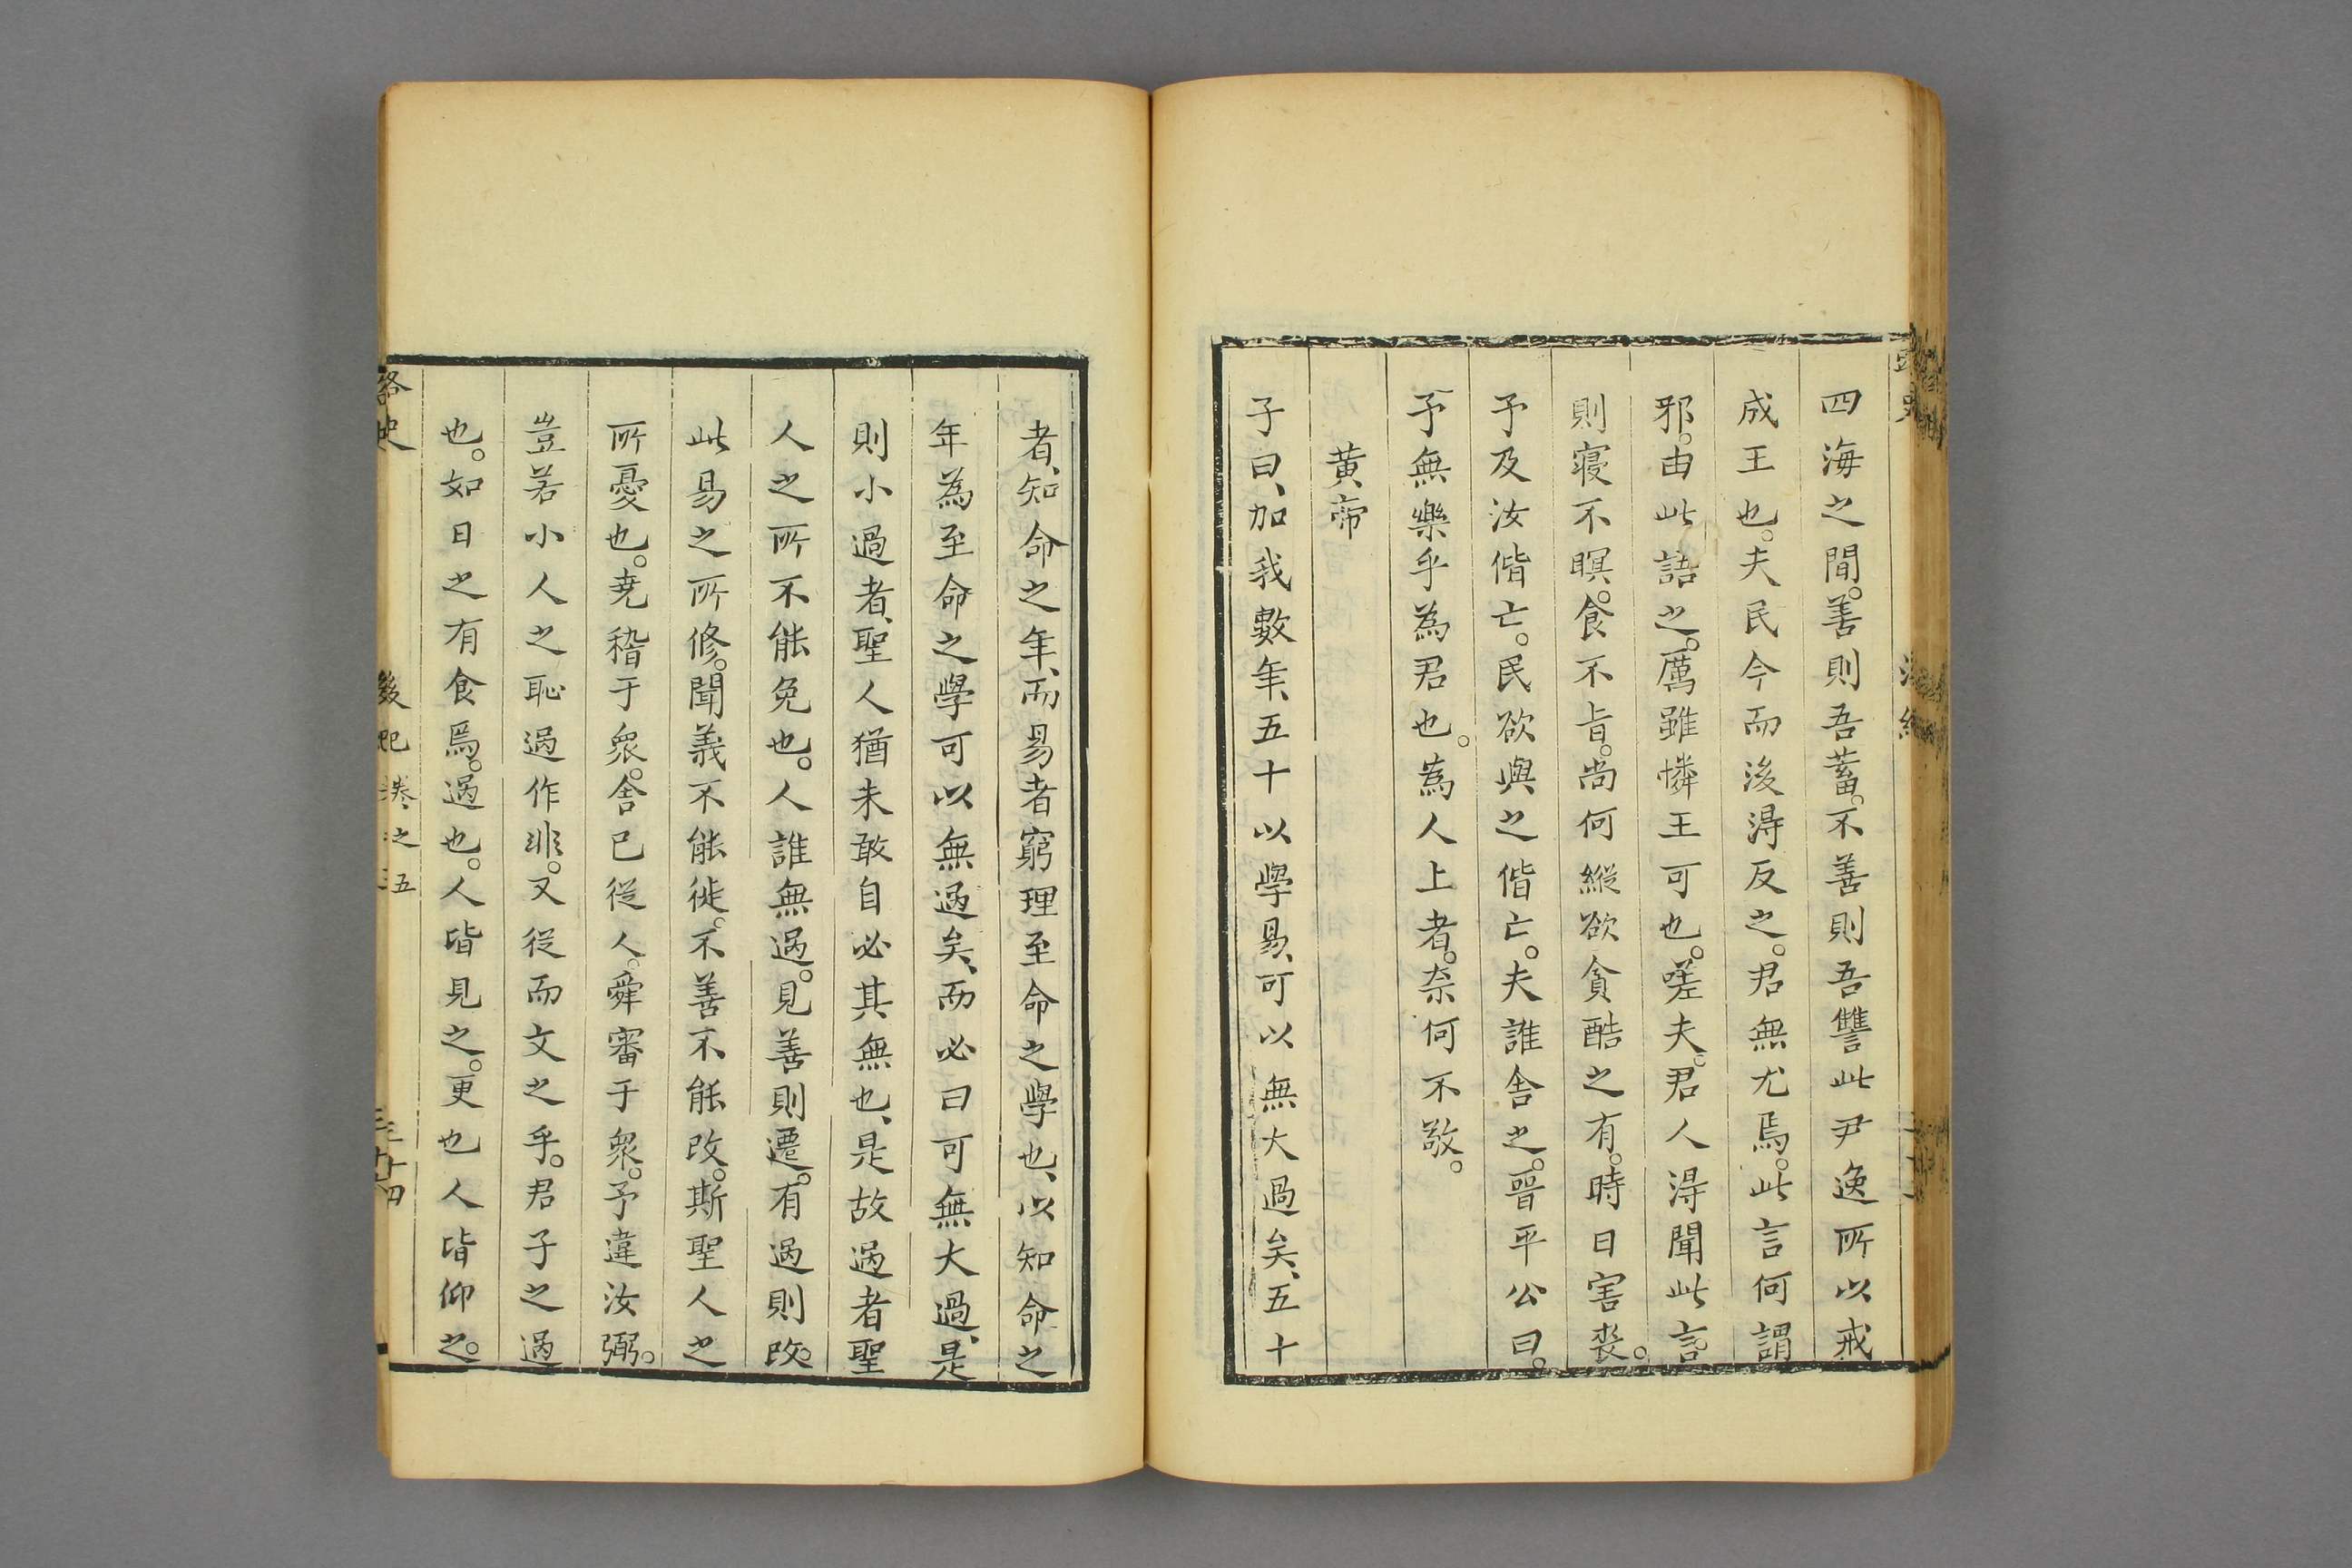 四海之間。善則吾蓄。不善則吾讐此尹逸所以戒
成王也。夫民今而後淂反之。君無尤焉。此言何謂
邪。由此語之。厲雖憐王可也。嗟夫。君人淂聞此言
則寢不瞑。食不旨。尚何縱欲貪酷之有。時日害喪。
予及汝偕亡。民欲與之偕亡。夫誰舍之。晉平公曰。
予無樂乎為君也。為人上者。奈何不敬。
黃帝
子曰、加我數年、五十以學易、可以無大過矣、五十
者、知命之年、而易者窮理至命之學也、以知命之
年為至命之學可以無過矣、而必曰可無大過、是
則小過者、聖人猶未敢自必其無也、是故過者聖
人之所不能免也。人誰無過。見善則遷。有過則改。
此易之所修。聞義不能徙。不善不能改。斯聖人之
所憂也。堯稽于衆。舍己從人。舜審于衆。予違汝弼。
豈若小人之恥過作非。又從而文之乎。君子之過
也。如日之有食焉。過也。人皆見之。更也人皆仰之。
路史
後紀卷之五
三十四